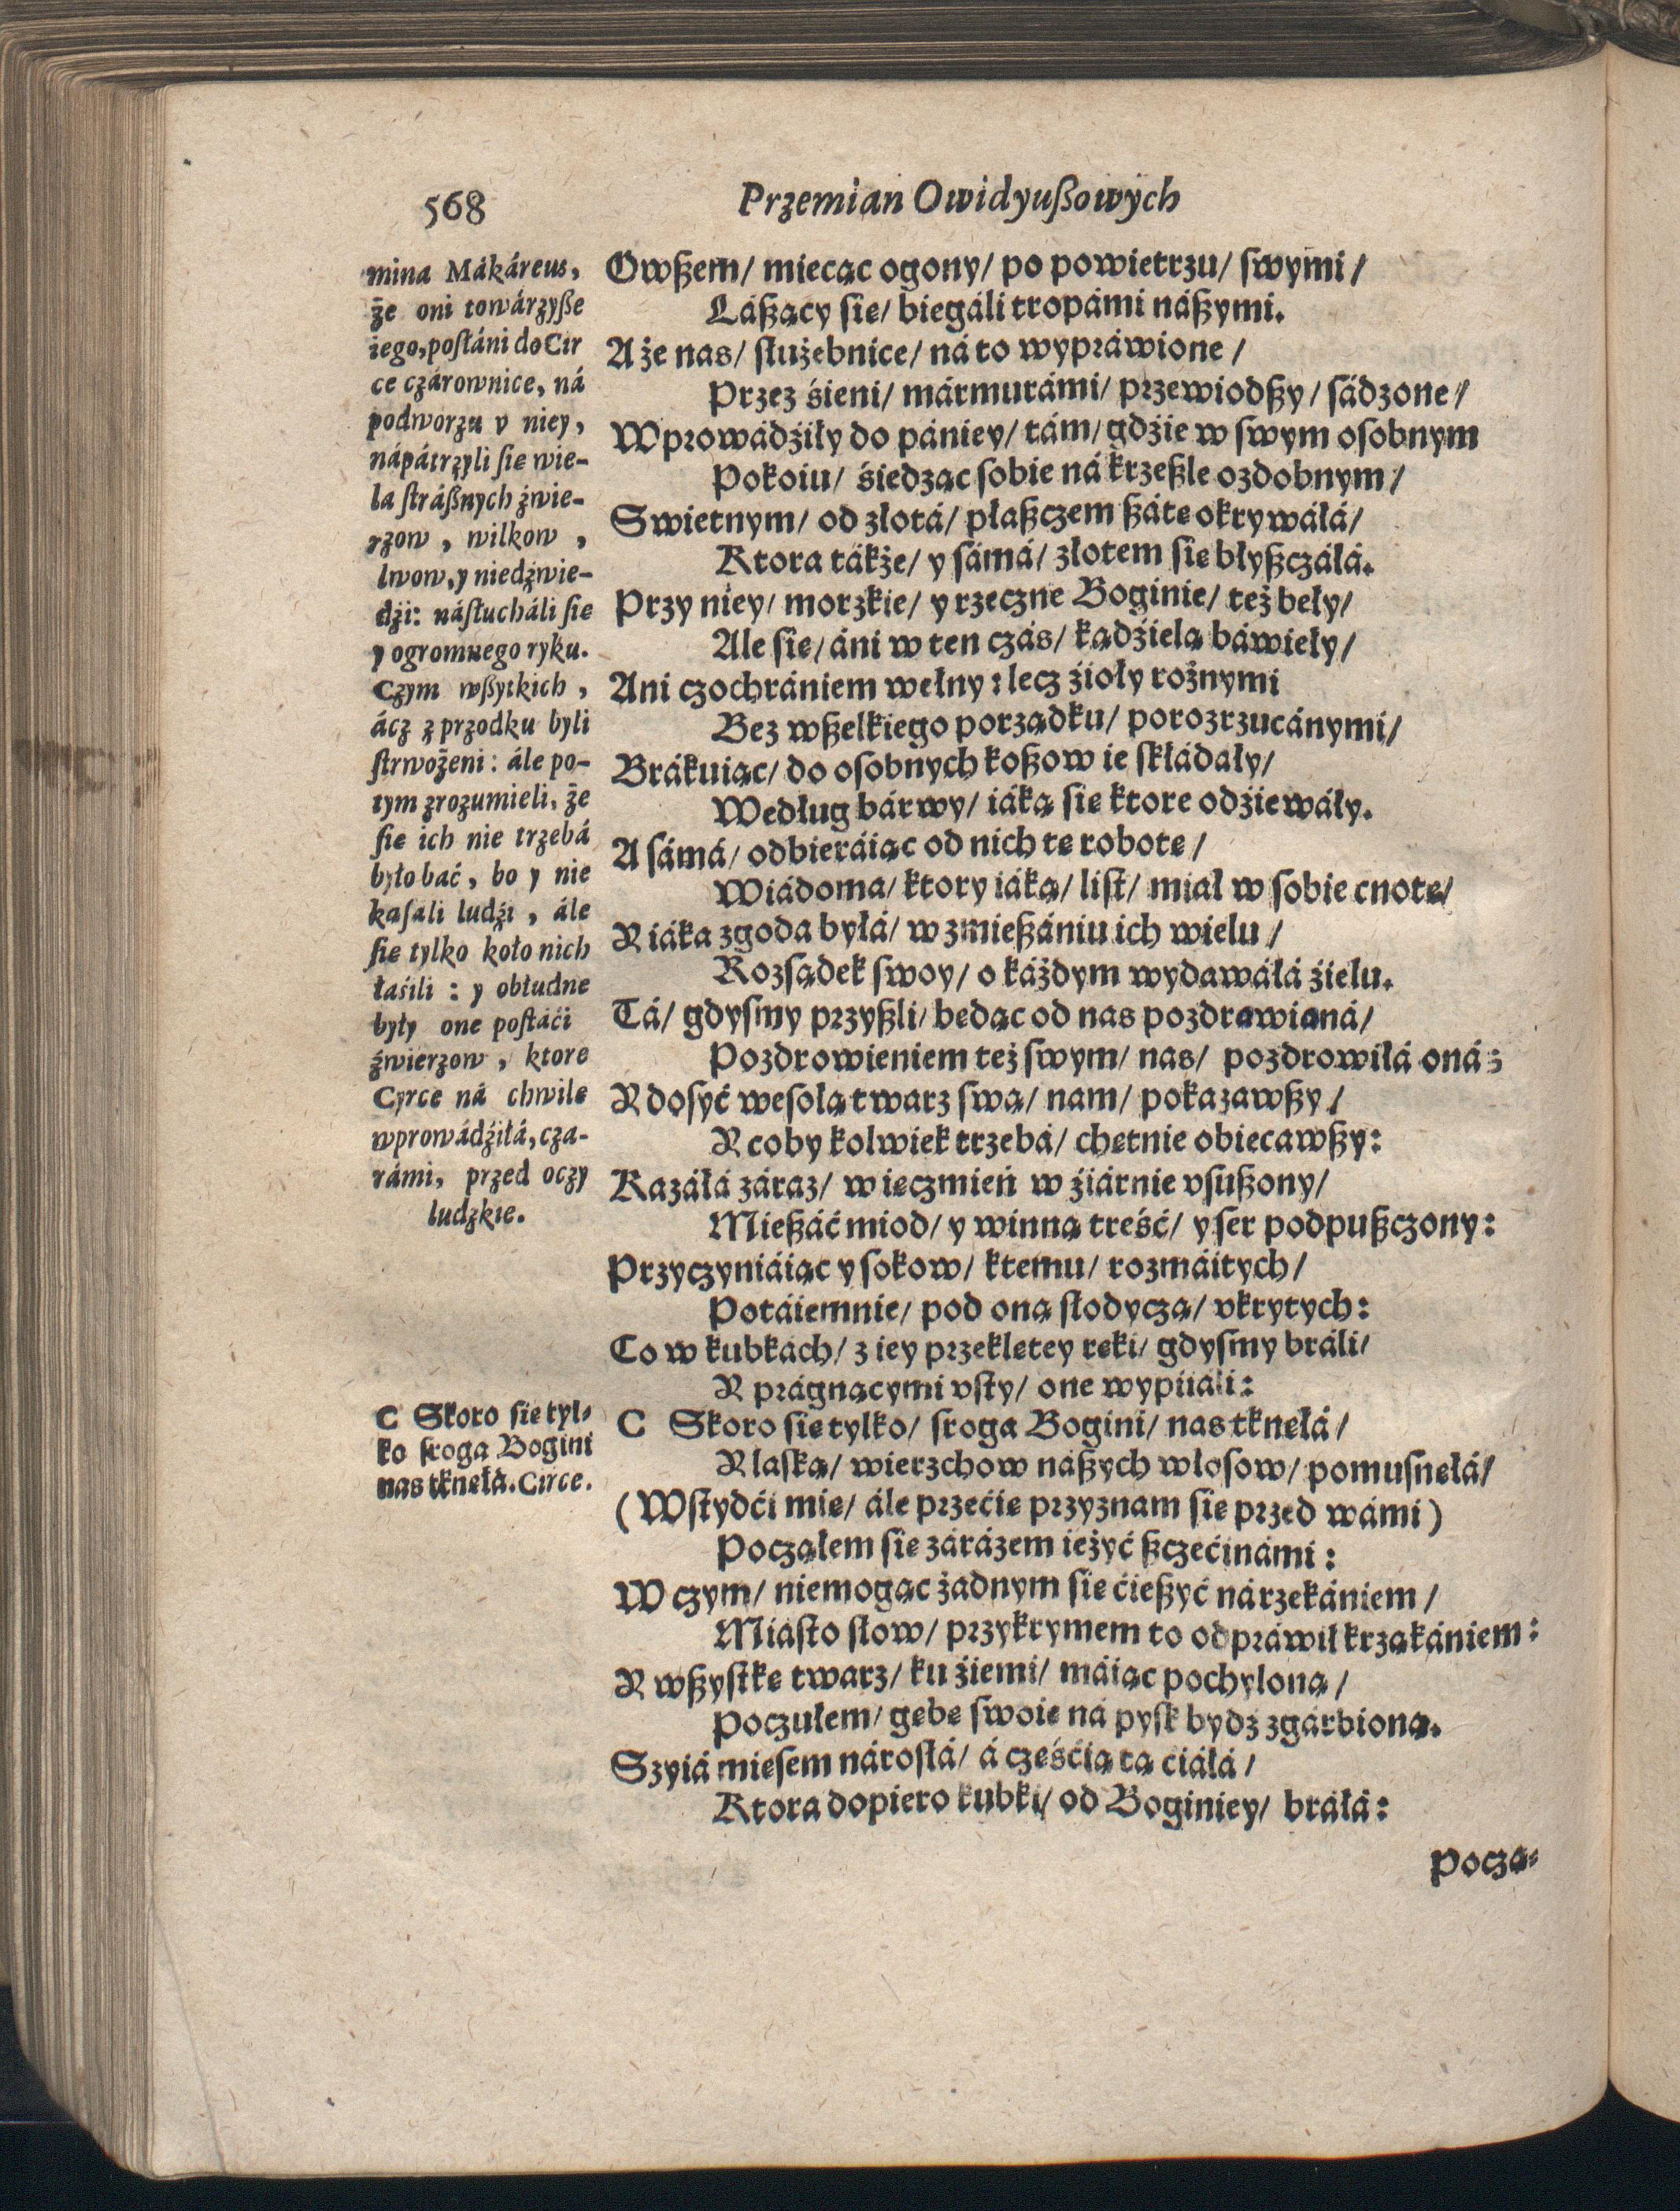 568
Przemian Owidyußowych
mina Mákáreus,
że oni towárzyße
iego, posłáni do Cir
ce czárownice, ná
podworzu v niey,
nápátrzyli sie wie-
la stráßnych źwie-
rzow, wilkow,
lwow, y niedźwie-
dźi: násłucháli sie
y ogromnego ryku.
Czym wßytkich,
ácz z przodku byli
strwożeni: ále po-
tym zrozumieli, że
sie ich nie trzebá
było bać, bo y nie
kasáli ludźi, ále
sie tylko koło nich
łaśili: y obłudne
były one postáći
źwierzow, ktore
Cyrce ná chwile
wprowádźiłá, cza-
rámi, przed oczy
ludzkie.
C Skoro sie tyl-
ko sroga Bogini
nas tknełá. Circe.
Owßem/ miecąc ogony/ po powietrzu/ swymi/
Láßący sie/ biegáli tropámi náßymi.
A że nas/ służebnice/ ná to wypráwione/
Przez śieni/ mármurámi/ przewiodßy/ sádzone/
Wprowádźiły do pániey/ tám/ gdźie w swym osobnym
Pokoiu/ śiedząc sobie ná krzeßle ozdobnym/
Swietnym/ od złotá/ płaßczem ßáte okrywáłá/
Ktora tákże/ y sámá/ złotem sie błyßczáłá.
Przy niey/ morzkie/ y rzeczne Boginie/ też beły/
Ale sie/ áni w ten czás/ kądźielą báwieły/
Ani czochrániem wełny: lecz źioły rożnymi
Bez wßelkiego porządku/ porozrzucánymi/
Brákuiąc/ do osobnych koßow ie składały/
Według bárwy/ iáką sie ktore odźiewáły.
A sámá/ odbieráiąc od nich te robote/
Wiádoma/ ktory iáką/ list/ miał w sobie cnote/
Y iáka zgoda byłá/ w zmießániu ich wielu/
Rozsądek swoy/ o káżdym wydawáłá źielu.
Tá/ gdysmy przyßli/ bedąc od nas pozdrawianá/
Pozdrowieniem też swym/ nas/ pozdrowiłá oná:
Y dosyć wesołą twarz swą/ nam/ pokazawßy/
Y coby kolwiek trzebá/ chetnie obiecawßy:
Kazáłá záraz/ w ieczmień w źiárnie vsußony/
Mießáć miod/ y winną treść/ y ser podpußczony:
Przyczyniáiąc y sokow/ ktemu/ rozmáitych/
Potáiemnie/ pod oną słodyczą/ vkrytych:
Co w kubkách/ z iey przekletey reki/ gdysmy bráli/
Y prágnącymi vsty/ one wypiiáli:
C Skoro sie tylko/ sroga Bogini/ nas tknełá/
Y laską/ wierzchow náßych włosow/ pomusnełá/
(Wstydći mie/ ále przećie przyznam sie przed wámi)
Począłem sie zárázem ieżyć ßczećinámi:
W czym/ niemogąc żadnym sie ćießyć nárzekániem/
Miásto słow/ przykrymem to odpráwił krząkániem:
Y wßystke twarz/ ku źiemi/ máiąc pochyloną/
Poczułem/ gebe swoie ná pysk bydź zgárbioną.
Szyiá miesem nárosłá/ á cześćią tą ćiáłá/
Ktora dopiero kubki/ od Boginiey/ bráłá:
Pocza-